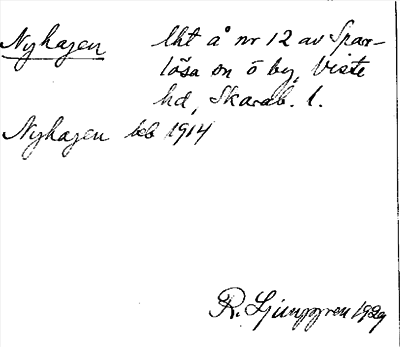 Nyhagen lht å nr 12 av Spar-
lösa sn ö by, Viste
hd, Skarab. l.
Nyhagen kb 1914
R. Ljunggren 1929